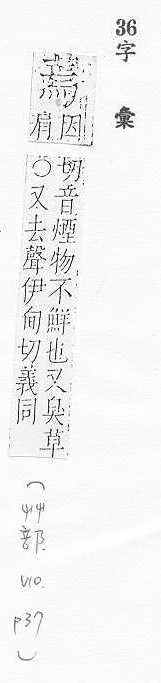 36
字彙
蔫
因
肩
切音煙物不鮮也又臭草
○又去聲伊甸切義同
(艸部 V10. P37)